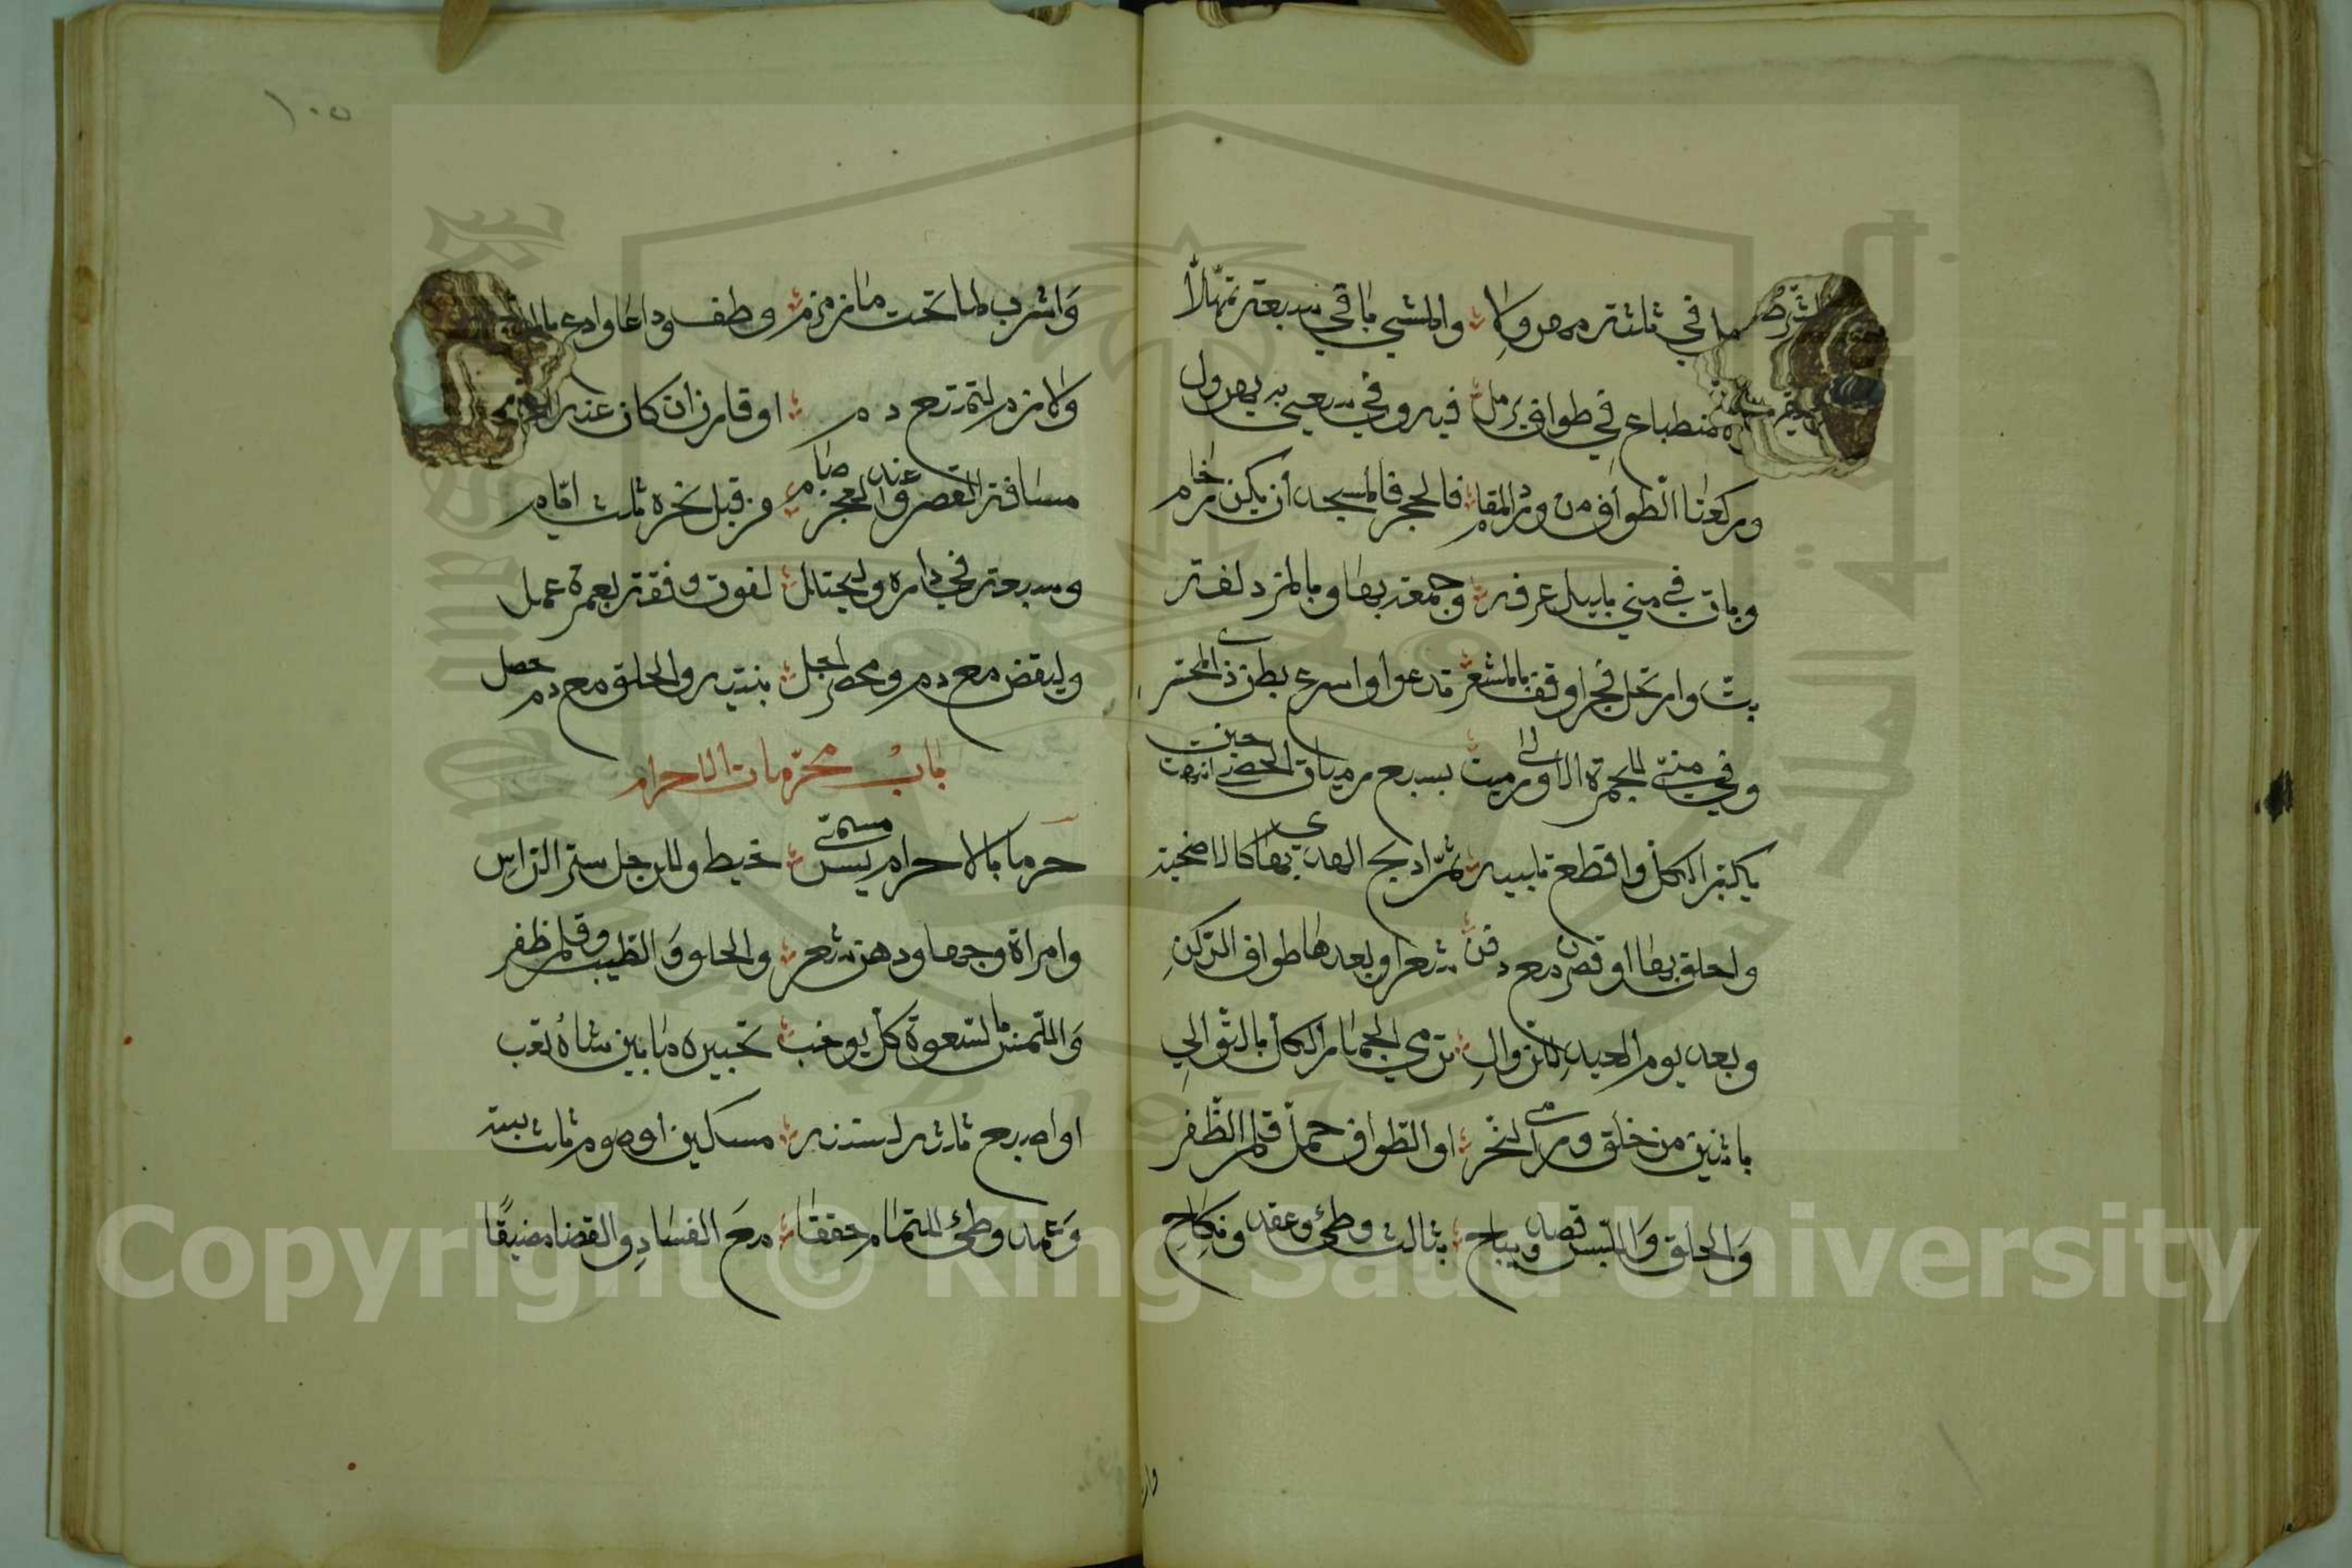 ما في ثلثة مهرولا والمشي باقي سبعة تمهلا
في طواف يرمل فيه وفي سعي به يهرول
وركعتا الطواف من ورا المقام فالحجر فالمسجد ان يكن زحام
وبات في مني بليل عرفه وجمعه بها وبالمزدلفه
بت وارتحل فجرا وقف بالمشعر تدعوا واسرع بطن ذي المحسر
وفي مني للجمرة الاولى رميت بسبع رميات الحصى حين انتهيت
يكبر الكل واقطع تلبيه ثم اذبح الهدي بها كالاضحية
واحلق بها او قصرن مع دفن شعرا وبعدها طواف الركن
وبعد يوم العيد للزوال ترمي الجمار الكل بالتوالي
باثنين من خلق ورمي النحر او الطواف حل قلم الظفر
والحلق واللبس وصيد ويباح بثالث وطئ وعقد ونكاح
وَاشرب لما تحب ما زمزم وطف وداعا وادع
ولازم لتمتع دم او قارن ان كان عنه
مسافة القصر وعند العجز صام من قبل نحره ثلث ايام
وسبعة في داره وليحتلل لفوت وقفة بعمرة عمل
وليقض مع دم ومحصر احل بنية والحلق مع دم حصل
باب محرمات الاحرام
حرم بالاحرام مسمى لبس خيط وللرجل ستر الراس
وامراة وجها ودهن شعر والحلق والطيب وقلم ظفر
واللمس بالشهوة كل يوجب تخييره ما بين شاة تعب
او اصبع ثلثة لستة مسكين او صوم ثلث بيت
وعمد وطئ للتمام حققا مع الفساد والقضا مضيقا
١٠٥
Copyright © King Saud University